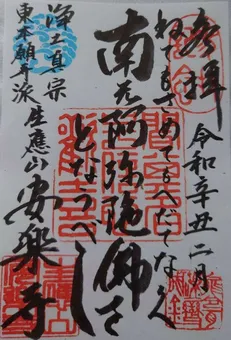 参拜
令和辛丑二月
ねてもさめてもへだてなく
南无阿弥陀佛を
となうべし
浄土真宗
東本願寺派生應山
安楽寺